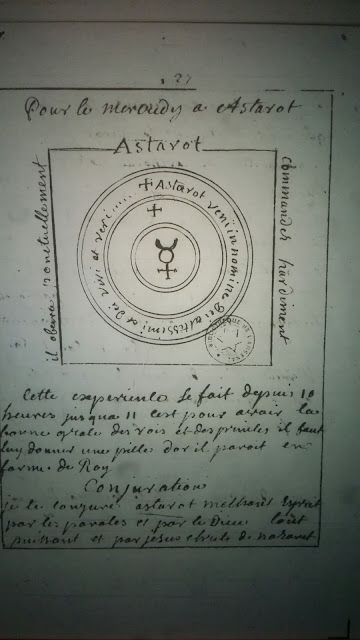 27
Pour le mercredy a Astarot
Astarot
il obeira ponctuellement
commandés hardiment
+ Astarot veni in nomine Dei altessimi et dei vivi et veri
+
BIBLIOTHEQUE DE L'ARSENAL
Cette experience se fait depuis 10
heures jusqua 11 cest pour avoir la
bonne grace des rois et des princes il faut
luy donner une pille dor il paroit en
forme de Roy
Conjuration
je te conjure astarot méchant Esprit
par les paroles et par le Dieu tout
puissant et par jesus christ de nazaret